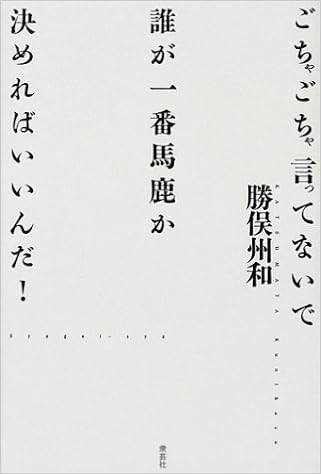 ごちゃごちゃ言ってないで
勝俣州和
KATSUMATA Kunikazu
誰が一番馬鹿か
決めればいいんだ!
衆芸社